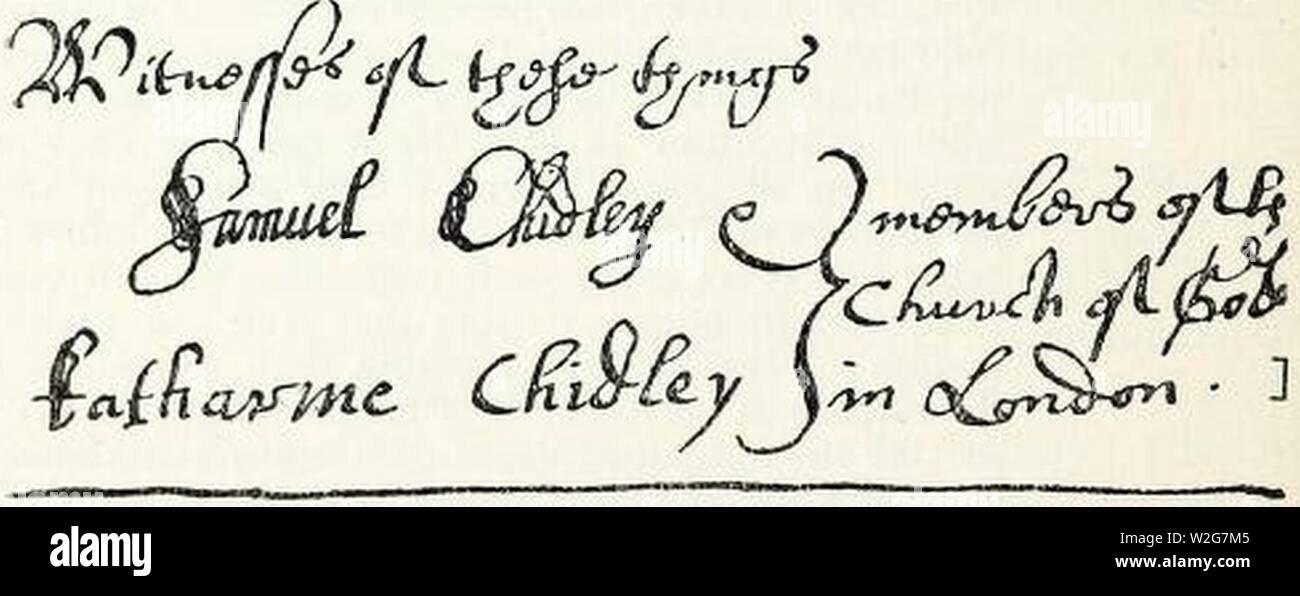 Witnesses of these things
Samuel Chidley } members of the
Church of God
Katharine Chidley in London. ]
alamy
Image ID: W2G7M5
www.alamy.com